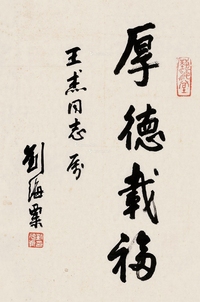 厚德載福
王杰同志屬
劉海粟